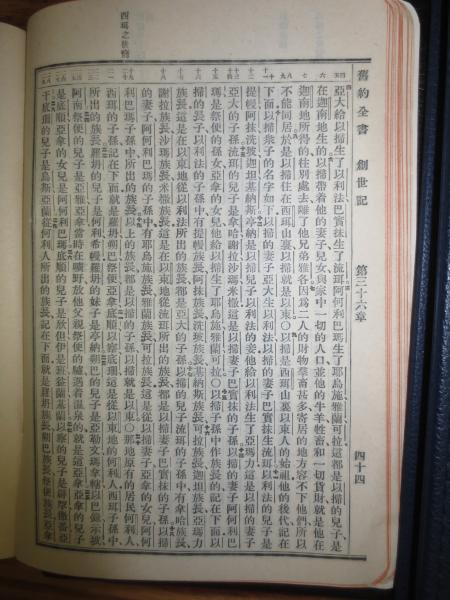 舊約全書 創世記 第三十六章 四十四
亞大給以掃生了以利法巴實抹生了流珥阿何利巴瑪生了耶烏施雅蘭可拉這都是以掃的兒子是
在迦南地生的以掃帶着他的妻子兒女與家中一切的人口並他的牛羊牲畜和一切貨財就是他在
迦南地所得的往別處去離了他兄弟雅各因爲二人的財物羣畜甚多寄居的地方容不下他們所以
不能同居於是以掃住在西珥山裏以掃就是以東○以掃是西珥山裏以東人的始祖他的後代記在
下面以掃衆子的名字如下以掃的妻子亞大生以利法以掃的妻子巴實抹生流珥以利法的兒子是
提幔阿抹洗玻迦坦基納斯亭納是以掃兒子以利法的妾他給以利法生了亞瑪力這是以掃的妻子
亞大的子孫流珥的兒子是拿哈謝拉沙瑪米撒這是以掃妻子巴實抹的子孫以掃的妻子阿何利巴
瑪是祭便的孫女亞拿的女兒他給以掃生了耶烏施雅蘭可拉○以掃子孫中作族長的記在下面以
掃的長子以利法的子孫中有提幔族長阿抹族長洗玻族長基納斯族長可拉族長迦坦族長亞瑪力
族長這是在以東地從以利法所出的族長都是亞大的子孫以掃的兒子流珥的子孫中有拿哈族長
謝拉族長沙瑪族長米撒族長這是在以東地從流珥所出的族長都是以掃妻子巴實抹的子孫以掃
的妻子阿何利巴瑪的子孫中有耶烏施族長雅蘭族長可拉族長這是從以掃妻子亞拿的女兒阿何
利巴瑪子孫中所出的族長以上的族長都是以掃的子孫以掃就是以東○那地原有的居民何利人
西珥的子孫記在下面就是羅坍朔巴祭便亞拿底順以察底珊這是從以東地的何利人西珥子孫中
所出的族長羅坍的兒子是何利希幔羅坍的妹子是亭納朔巴的兒子是亞勒文瑪拿轄以巴錄示玻
阿南祭便的兒子是亞雅亞拿當時在曠野放他父親祭便的驢遇着溫泉的就是這亞拿亞拿的兒子
是底順亞拿的女兒是阿何利巴瑪底順的兒子是欣但伊是班益蘭基蘭以察的兒子是辟罕撒番亞
干底珊的兒子是烏斯亞蘭從何利人所出的族長記在下面就是羅坍族長朔巴族長祭便族長亞拿
西珥之後裔